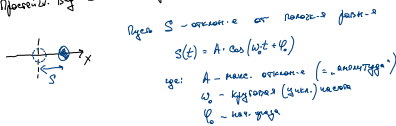 Простейш. вид
Пусть S - отклон-е от полож-я равн-я
S(t) = A · cos(ω₀t + φ₀)
x
S
где: A - макс. отклон-е (= „амплитуда")
ω₀ - круговая (цикл.) частота
φ₀ - нач. фаза